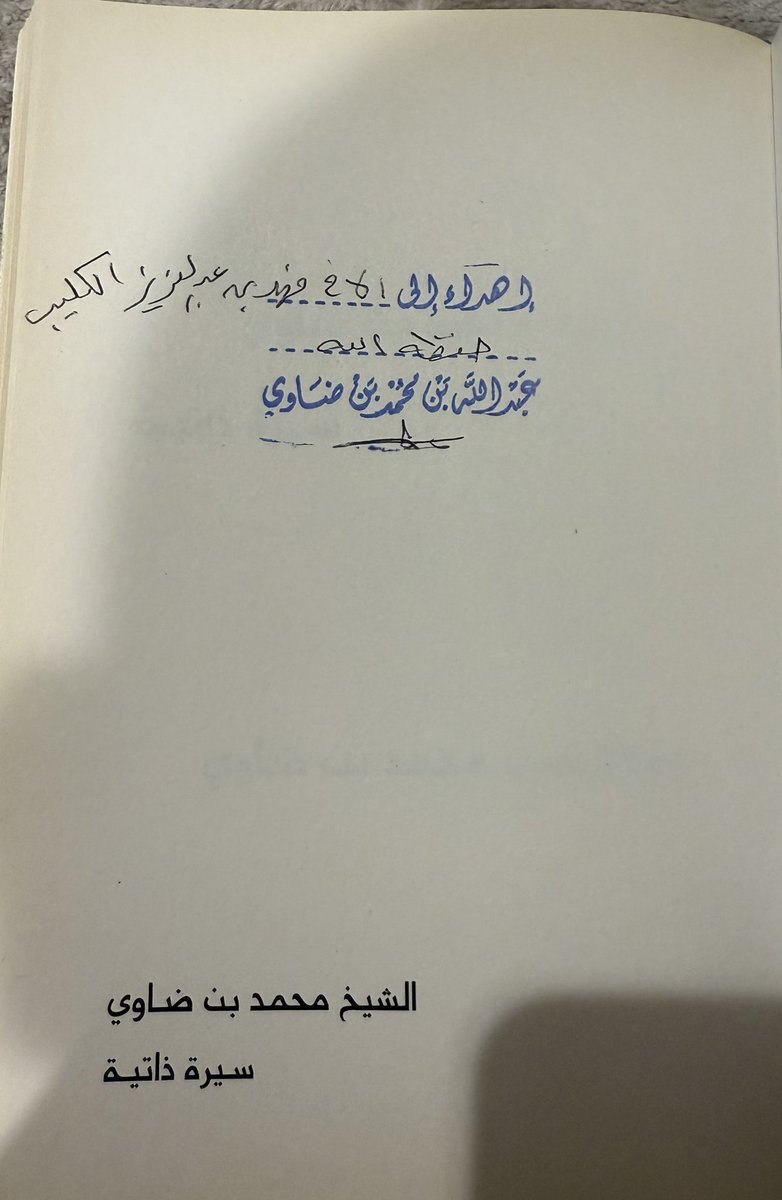 إهداء إلى الاخ فهد بن عبدالعزيز الكليب
حفظه الله
عبدالله بن محمد بن ضاوي
الشيخ محمد بن ضاوي
سيرة ذاتية